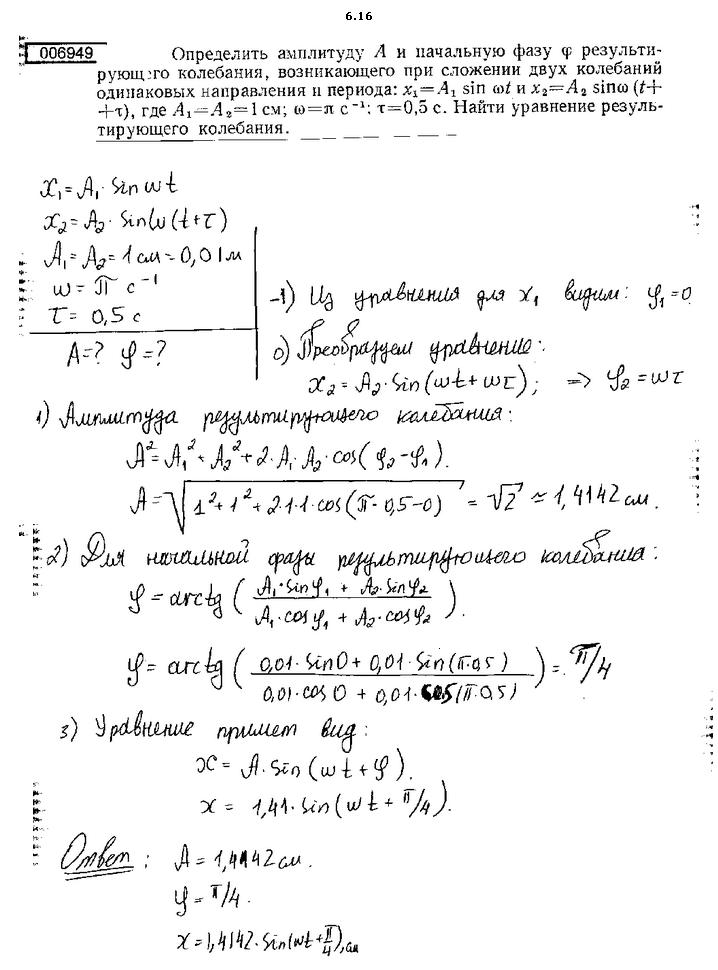 6.16
006949
Определить амплитуду A и начальную фазу φ результи-
рующего колебания, возникающего при сложении двух колебаний
одинаковых направления и периода: x₁=A₁ sin ωt и x₂=A₂ sinω (t+
+τ), где A₁=A₂=1 см; ω=π с⁻¹; τ=0,5 с. Найти уравнение резуль-
тирующего колебания.
x₁=A₁·Sin ωt
x₂=A₂·Sin ω(t+τ)
A₁=A₂=1см=0,01м
ω=π с⁻¹
τ=0,5с
A=? φ=?
-1) Из уравнения для x₁ видим: φ₁=0
0) Преобразуем уравнение:
x₂=A₂·Sin(ωt+ωτ); => φ₂=ωτ
1) Амплитуда результирующего колебания:
A²=A₁²+A₂²+2·A₁·A₂·cos(φ₂-φ₁).
A=√(1²+1²+2·1·1·cos(π·0,5-0)) = √2 ≃ 1,4142 см.
2) Для начальной фазы результирующего колебания:
φ=arctg((A₁·Sinφ₁ + A₂·Sinφ₂)/(A₁·cosφ₁ + A₂·cosφ₂)).
φ=arctg((0,01·Sin0 + 0,01·Sin(π·0,5))/(0,01·cos0 + 0,01·cos(π·0,5))) = π/4
3) Уравнение примет вид:
x=A·Sin(ωt+φ).
x=1,41·Sin(ωt+π/4).
Ответ: A=1,4142см.
φ=π/4.
x=1,4142·Sin(ωt+π/4),см